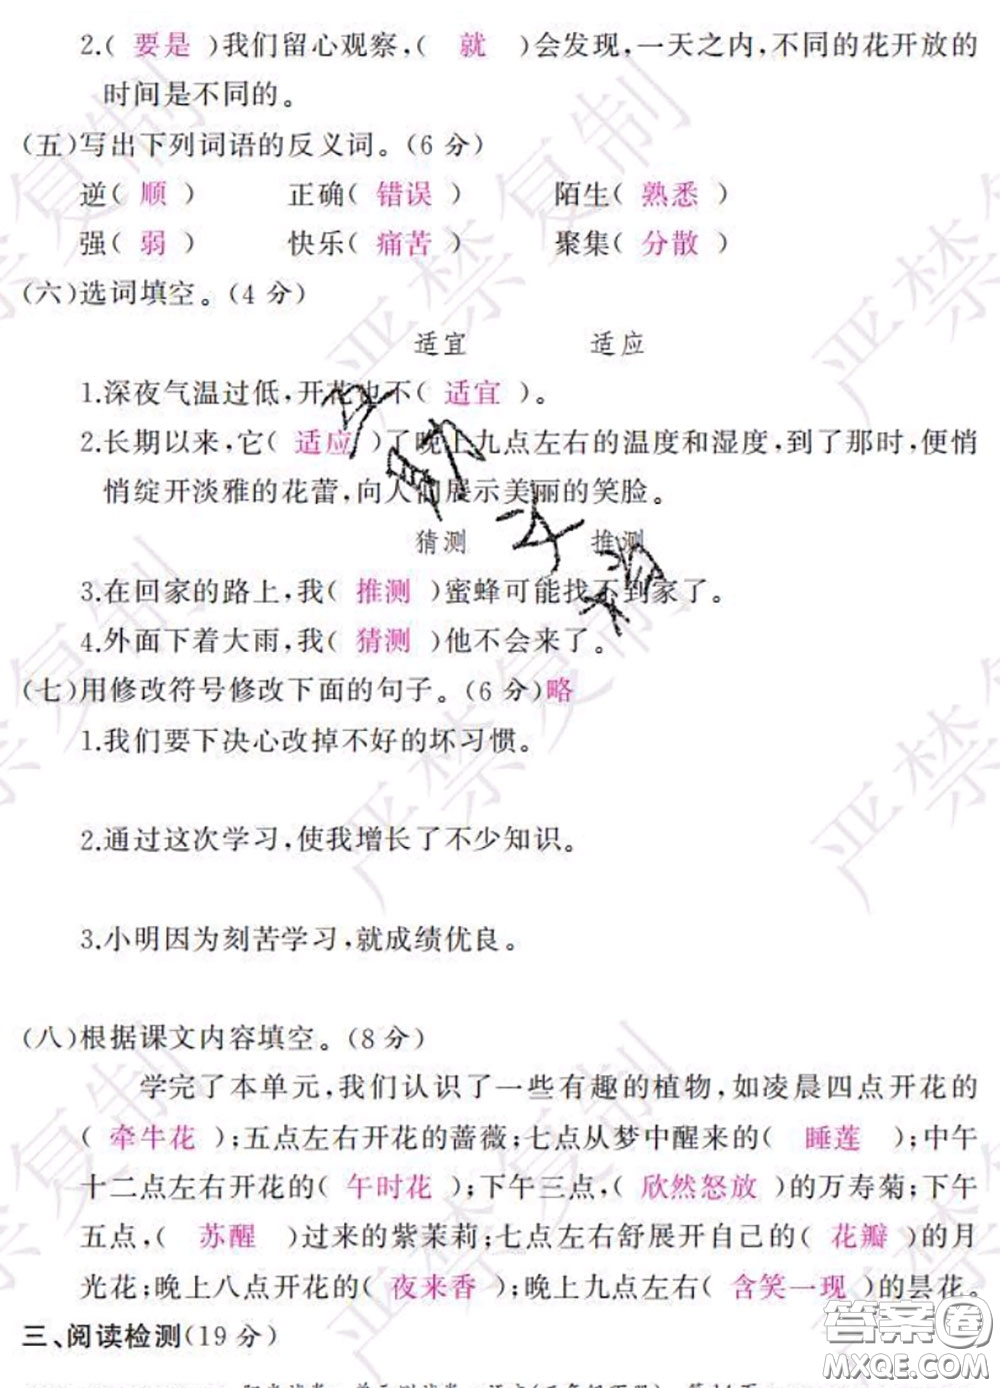 2.( 要是 )我们留心观察,( 就 )会发现,一天之内,不同的花开放的
时间是不同的。
(五)写出下列词语的反义词。(6 分)
逆( 顺 ) 正确( 错误 ) 陌生( 熟悉 )
强( 弱 ) 快乐( 痛苦 ) 聚集( 分散 )
(六)选词填空。(4 分)
适宜 适应
1.深夜气温过低,开花也不( 适宜 )。
2.长期以来,它( 适应 )了晚上九点左右的温度和湿度,到了那时,便悄
悄绽开淡雅的花蕾,向人们展示美丽的笑脸。
猜测 推测
3.在回家的路上,我( 推测 )蜜蜂可能找不到家了。
4.外面下着大雨,我( 猜测 )他不会来了。
(七)用修改符号修改下面的句子。(6 分)略
1.我们要下决心改掉不好的坏习惯。
2.通过这次学习,使我增长了不少知识。
3.小明因为刻苦学习,就成绩优良。
(八)根据课文内容填空。(8 分)
学完了本单元,我们认识了一些有趣的植物,如凌晨四点开花的
( 牵牛花 );五点左右开花的蔷薇;七点从梦中醒来的( 睡莲 );中午
十二点左右开花的( 午时花 );下午三点,( 欣然怒放 )的万寿菊;下午
五点,( 苏醒 )过来的紫茉莉;七点左右舒展开自己的( 花瓣 )的月
光花;晚上八点开花的( 夜来香 );晚上九点左右( 含笑一现 )的昙花。
三、阅读检测(19 分)
严禁复制
严禁复制
严禁复制
严禁复制
答案圈
MXQE.COM